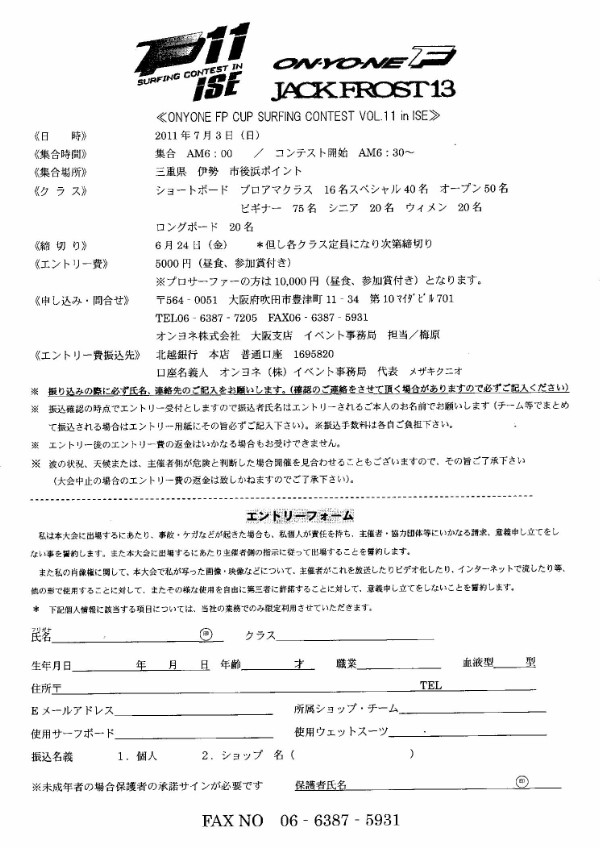 FP11
SURFING CONTEST IN
ISE
ON・YO・NE FP
JACK FROST 13
≪ONYONE FP CUP SURFING CONTEST VOL.11 in ISE≫
《日　時》 2011年7月3日（日）
《集合時間》 集合 AM6：00 ／ コンテスト開始 AM6：30～
《集合場所》 三重県 伊勢 市後浜ポイント
《クラス》 ショートボード プロアマクラス 16名スペシャル40名 オープン50名
ビギナー 75名 シニア 20名 ウィメン 20名
ロングボード 20名
《締切り》 6月24日（金） ＊但し各クラス定員になり次第締切り
《エントリー費》 5000円（昼食、参加賞付き）
※プロサーファーの方は10,000円（昼食、参加賞付き）となります。
《申し込み・問合せ》 〒564‐0051 大阪府吹田市豊津町11‐34 第10マイダビル701
TEL06‐6387‐7205 FAX06‐6387‐5931
オンヨネ株式会社 大阪支店 イベント事務局 担当／梅原
《エントリー費振込先》 北越銀行 本店 普通口座 1695820
口座名義人 オンヨネ（株）イベント事務局 代表 メザキクニオ
※ 振り込みの際に必ず氏名、連絡先のご記入をお願いします。（確認のご連絡をさせて頂く場合がありますので必ずご記入ください）
※ 振込確認の時点でエントリー受付としますので振込者氏名はエントリーされるご本人のお名前でお願いします（チーム等でまとめ
て振込される場合はエントリー用紙にその旨必ずご記入下さい）。※振込手数料は各自ご負担下さい。
※ エントリー後のエントリー費の返金はいかなる場合もお受けできません。
※ 波の状況、天候または、主催者側が危険と判断した場合開催を見合わせることもございますので、その旨ご了承下さい
（大会中止の場合のエントリー費の返金は致しかねますのでご了承下さい）。
エントリーフォーム
私は本大会に出場するにあたり、事故・ケガなどが起きた場合も、私個人が責任を持ち、主催者・協力団体等にいかなる請求、意義申し立てをし
ない事を誓約します。また本大会に出場するにあたり主催者側の指示に従って出場することを誓約します。
また私の肖像権に関して、本大会で私が写った画像・映像などについて、主催者がこれを放送したりビデオ化したり、インターネットで流したり等、
他の形で使用することに対して、またその様な使用を自由に第三者に許諾することに対して、意義申し立てをしないことを誓約します。
＊ 下記個人情報に該当する項目については、当社の業務でのみ限定利用させていただきます。
フリガナ
氏名 ㊞ クラス
生年月日 年 月 日 年齢 才 職業 血液型 型
住所〒 TEL
Eメールアドレス 所属ショップ・チーム
使用サーフボード 使用ウェットスーツ
振込名義 1．個人 2．ショップ 名（ ）
※未成年者の場合保護者の承諾サインが必要です 保護者氏名 ㊞
FAX NO 06‐6387‐5931